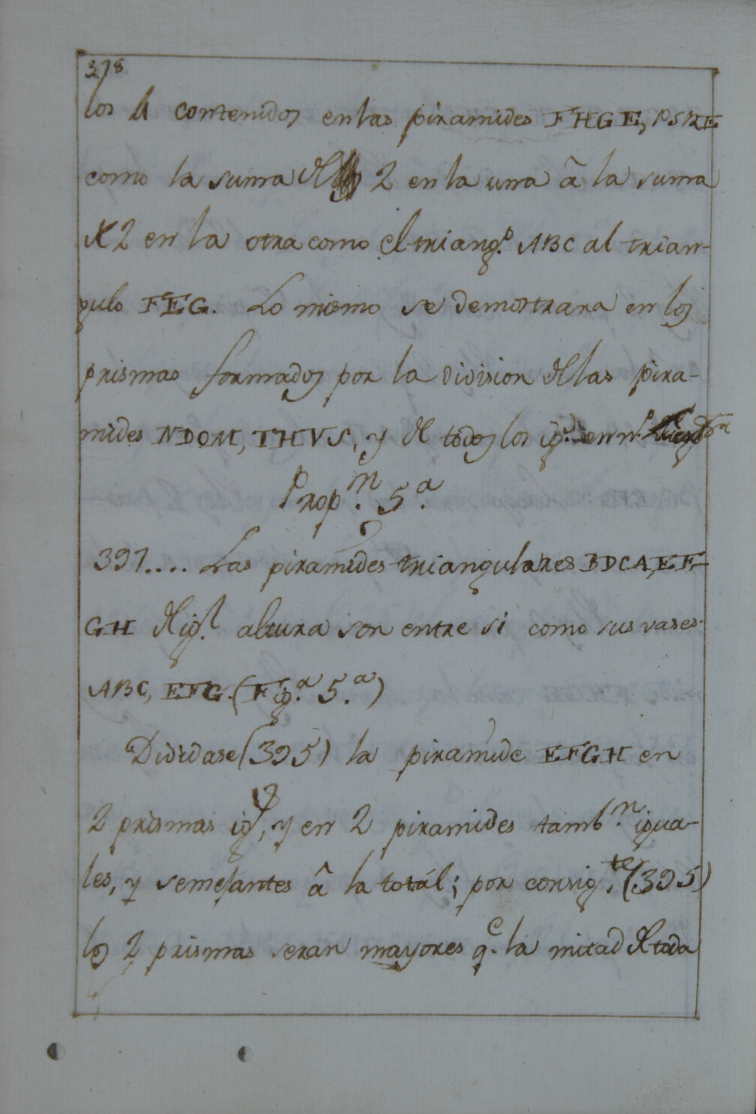 378
los 4 contenidos en las piramides FHGE, PSRE
como la suma de 2 en la una â la suma
de 2 en la otra como el triang.º ABC al trian-
gulo FEG. Lo mismo se demostrara en los
prismas formados por la division de las pira-
mides NDOM, THVS, y de todos los ig.s en n.º
Prop.n 5.a
397.... Las piramides triangulares BDCA, EF-
GH de ig.l altura son entre si como sus vases
ABC, EFG. (Fig.a 5.a)
Dividase (395) la piramide EFGH en
2 prismas ig.s, y en 2 piramides tamb.n igua-
les, y semejantes â la totál; por consig.te (395)
los 2 prismas seran mayores q.e la mitad de toda